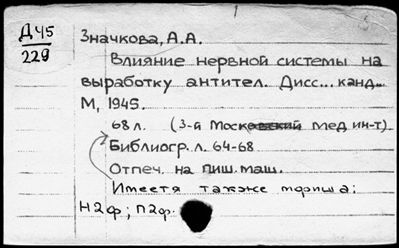 Д45
229
Значкова, А.А.
Влияние нервной системы на
выработку антител. Дисс... канд..
М, 1945.
68 л. (3-й Московский мед. ин-т).
Библиогр. л. 64-68
Отпеч. на пиш. маш.
Имеетя также
Н2ф; П2ф.